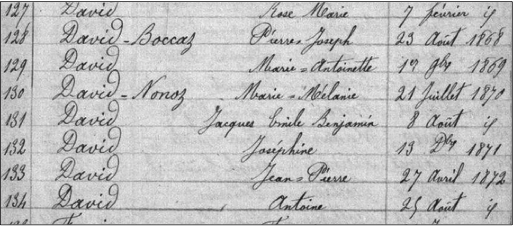 127 David Rose Marie 7 février id
128 David-Boccaz Pierre=Joseph 23 Août 1868
129 David Marie=Antoinette 17 9bre 1869
130 David-Nonoz Marie=Mélanie 21 Juillet 1870
131 David Jacques Emile Benjamin 8 Août id
132 David Joséphine 13 Dbre 1871
133 David Jean=Pierre 27 Avril 1872
134 David Antoine 25 Août id